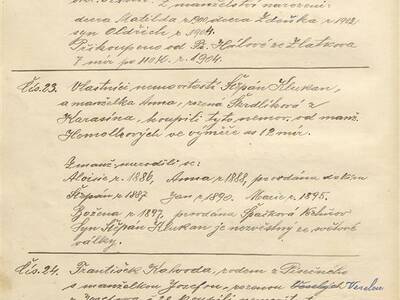 dcera Matilda r. 1900, dcera Zdeňka r. 1902
syn Oldřich r. 1904.
Přikoupeno od Fr. Hálové ze Zlatkova
7 mir po 110 K. r. 1904.
Čís. 23. Vlastníci nemovitosti Štěpán Klukan,
a manželka Anna, rozená Škrdlíková z
Karasína, koupili tyto nemov. od manž.
Homolkových ve výměře as 12 mír.
Z manž. narodili se:
Aloisie r. 1886, Anna r. 1888, provdána
Štěpán r. 1887 Jan r. 1890. Marie r. 1895.
Božena r. 1897. provdána
Syn Štěpán Klukan je nezvěstný ze světové
války.
Čís. 24. František Kalvoda, rodem z
s manželkou Josefou, rozenou